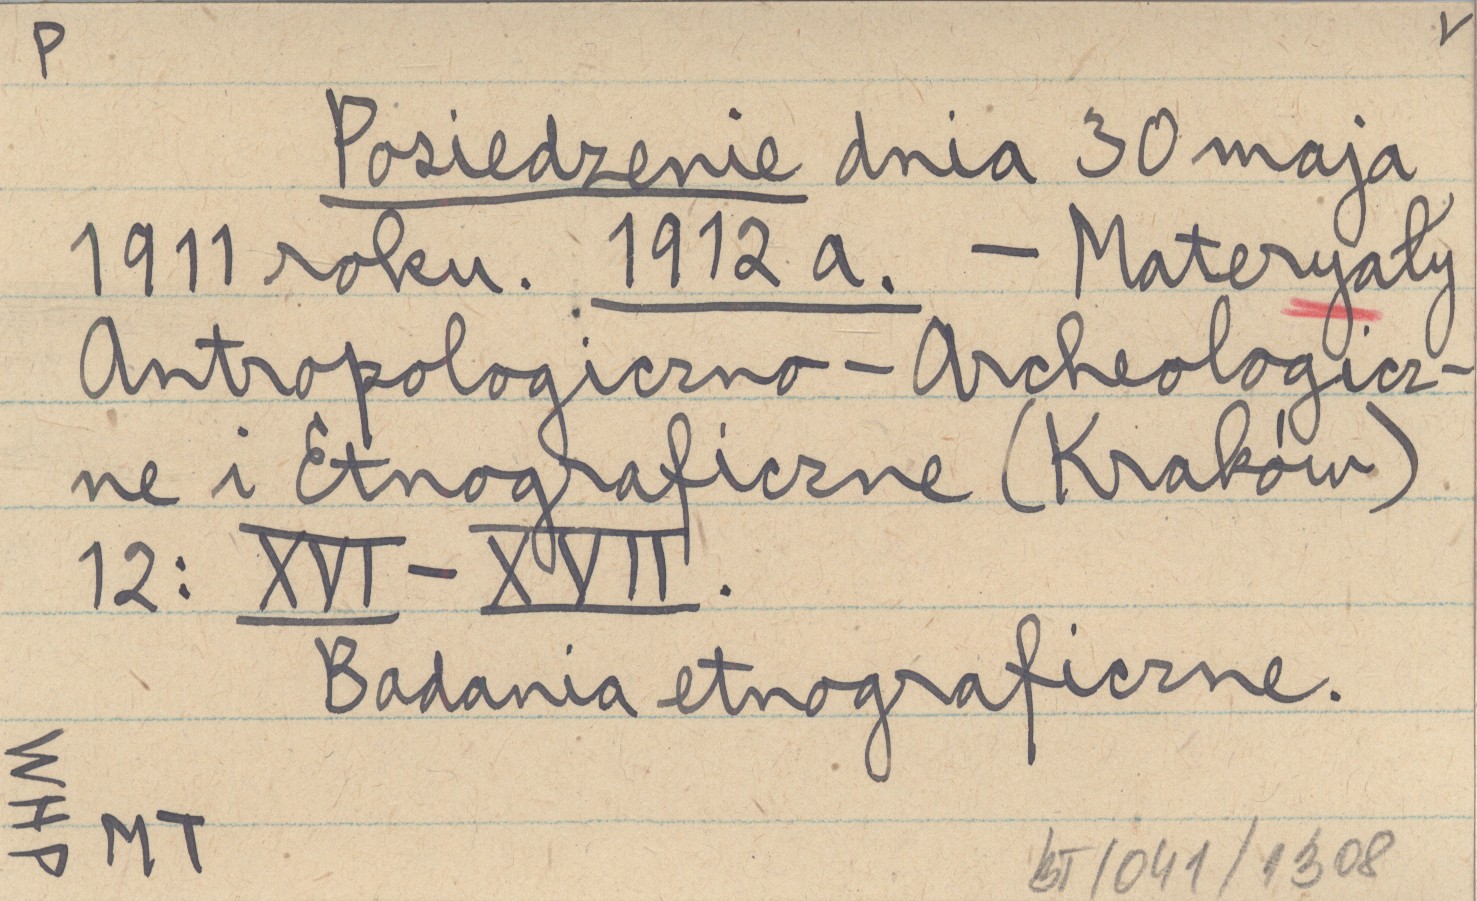 P
v
Posiedzenie dnia 30 maja
1911 roku. 1912 a. — Materyały
Antropologiczno-Archeologicz-
ne i Etnograficzne (Kraków)
12: XVI - XVII.
Badania etnograficzne.
WHP
MT
BT/041/1308